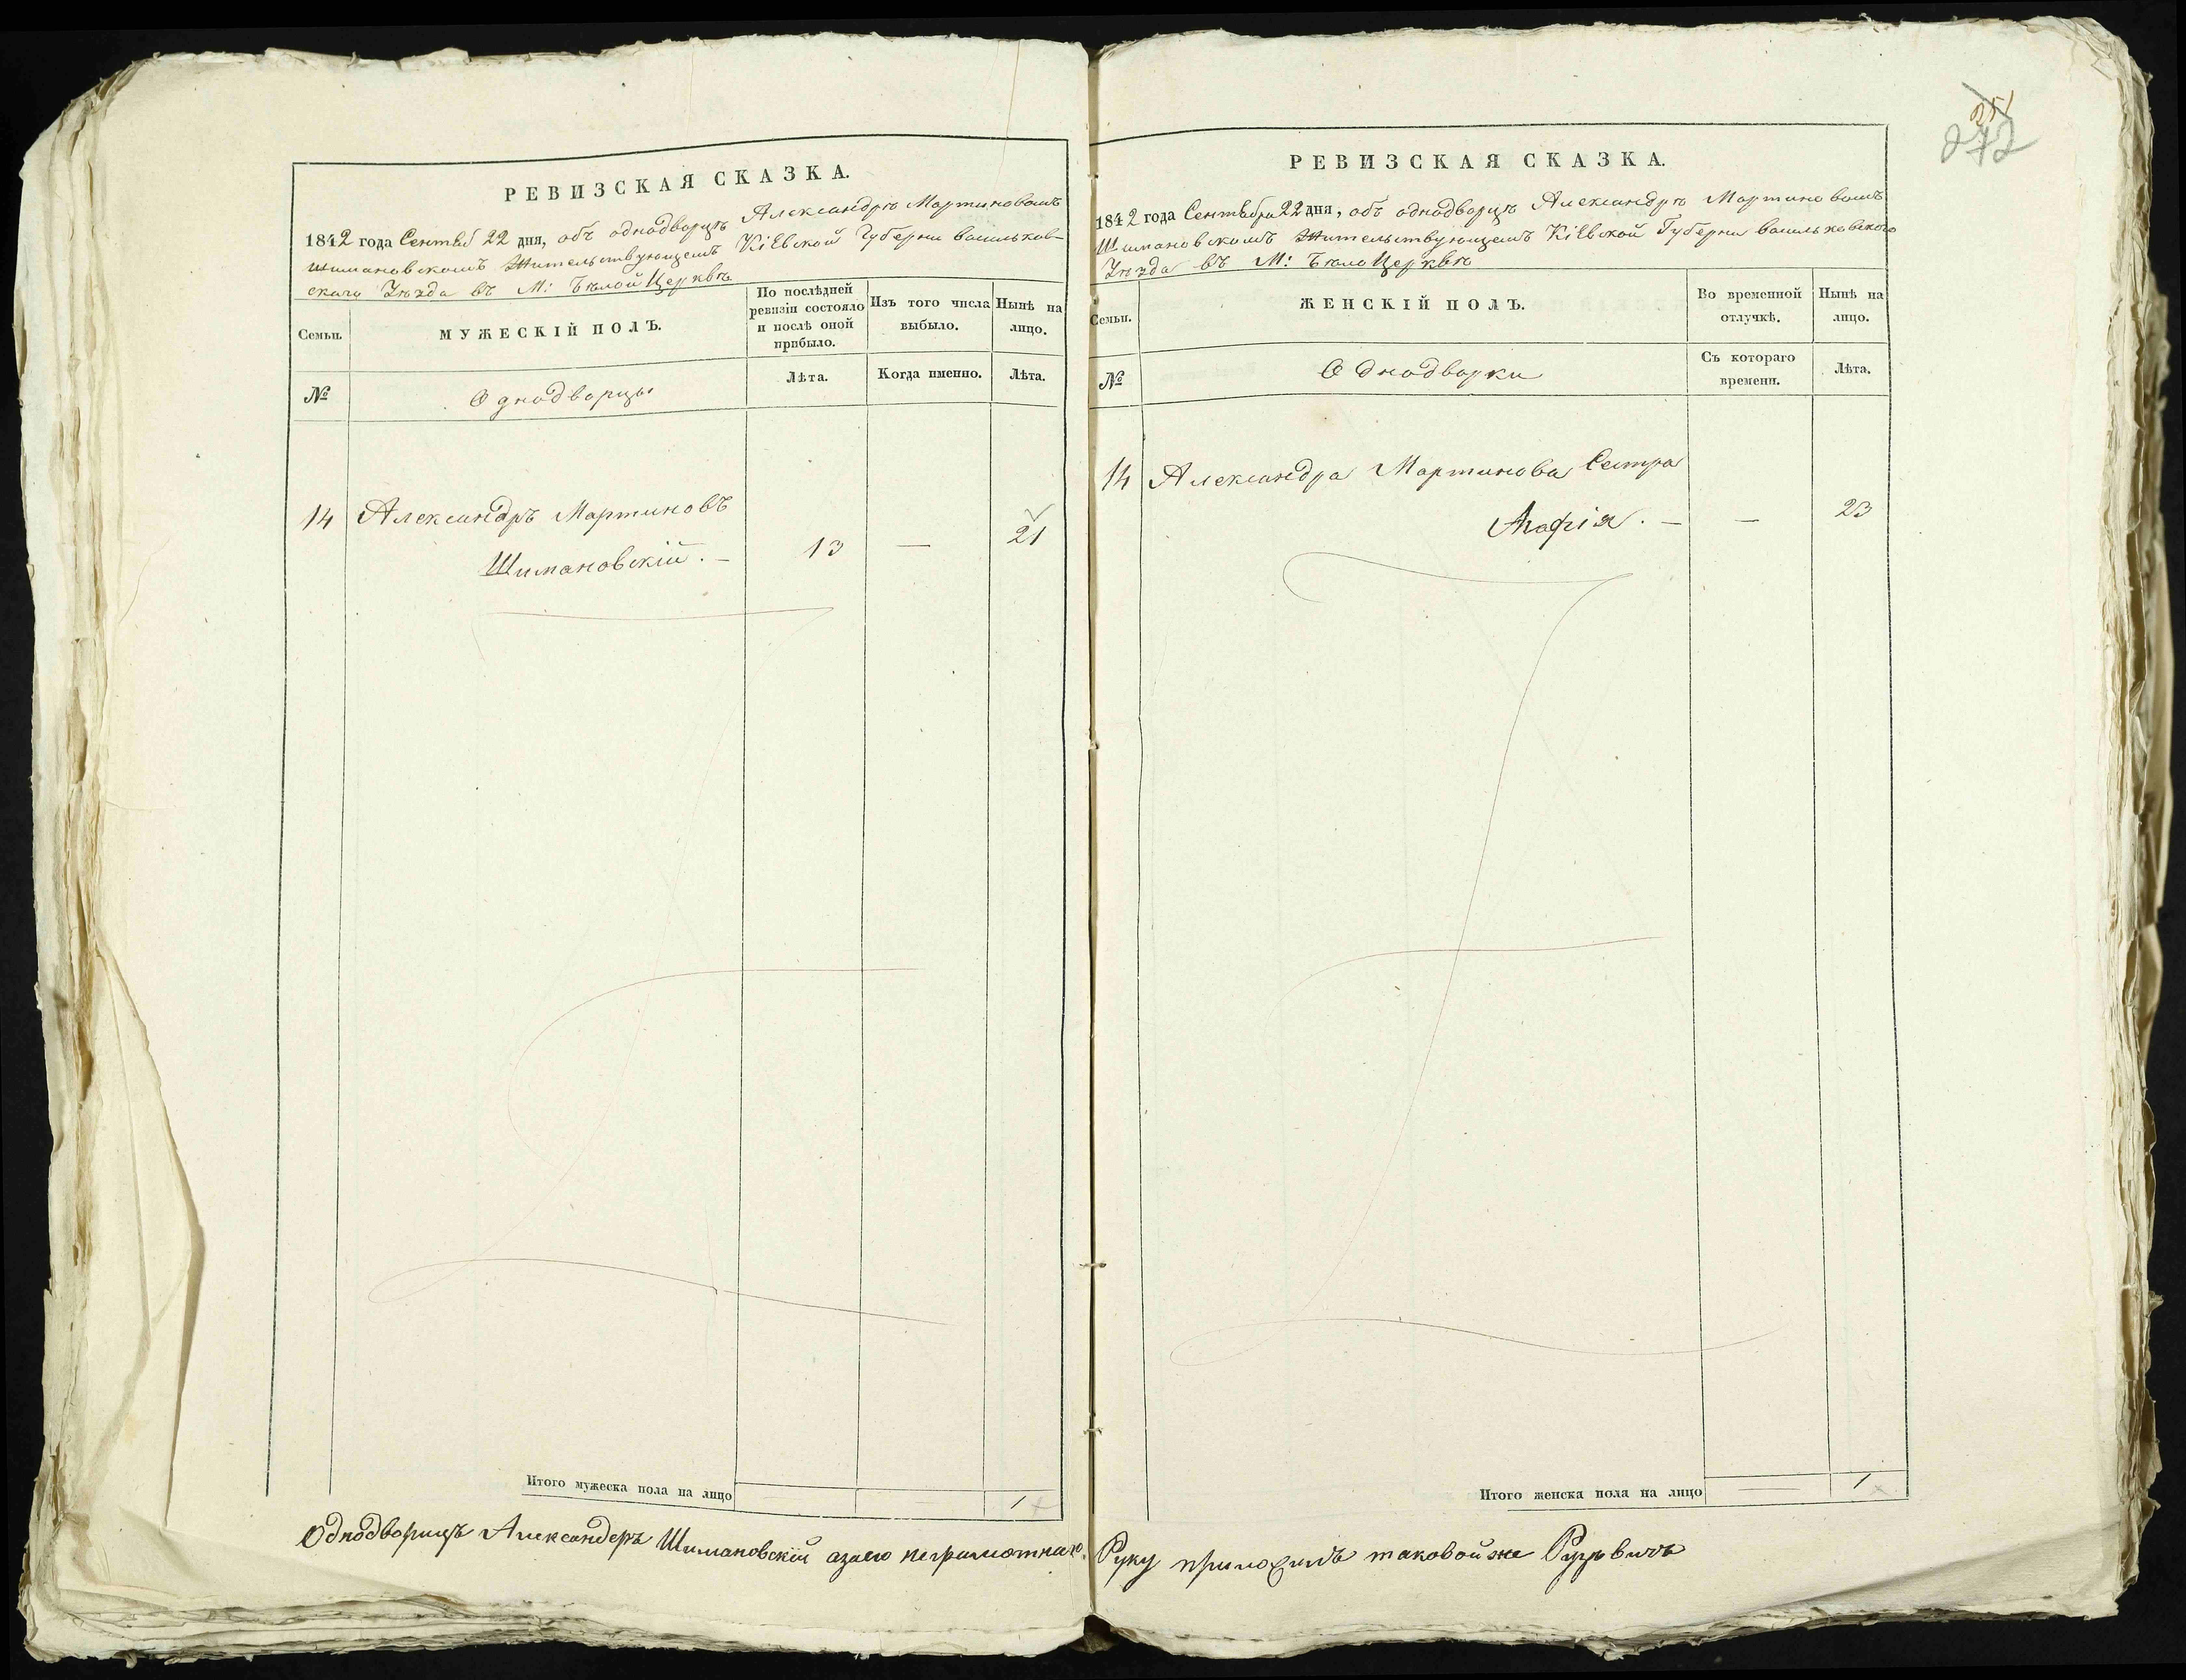 РЕВИЗСКАЯ СКАЗКА.
1842 года Сентяб 22 дня, объ однодворцѣ Александрѣ Мартиновомъ
Шимановскомъ Жительствующемъ Кіевской Губерни Васильков-
скаго Уѣзда въ М: Бѣлой Церквѣ
Семьи.
МУЖЕСКІЙ ПОЛЪ.
По послѣдней ревизіи состояло и послѣ оной прибыло.
Изъ того числа выбыло.
Нынѣ на лицо.
№
Однодворцы
Лѣта.
Когда именно.
Лѣта.
14 Александръ Мартиновъ
Шимановскій. — 13 — 21
Итого мужеска пола на лицо 1
Однодворицъ Александеръ Шимановскій азаего неграмотнаго
272
РЕВИЗСКАЯ СКАЗКА.
1842 года Сентября 22 дня, объ однодворцѣ Александрѣ Мартиновомъ
Шимановскомъ Жительствующемъ Кіевской Губерни Васильковского
Уѣзда въ М: Бѣло Церквѣ
Семьи.
ЖЕНСКІЙ ПОЛЪ.
Во временной отлучкѣ.
Нынѣ на лицо.
№
Однодворки
Съ котораго времени.
Лѣта.
14 Александра Мартинова Сестра
Агафія. — — 23
Итого женска пола на лицо — 1
Руку приложилъ таковой же